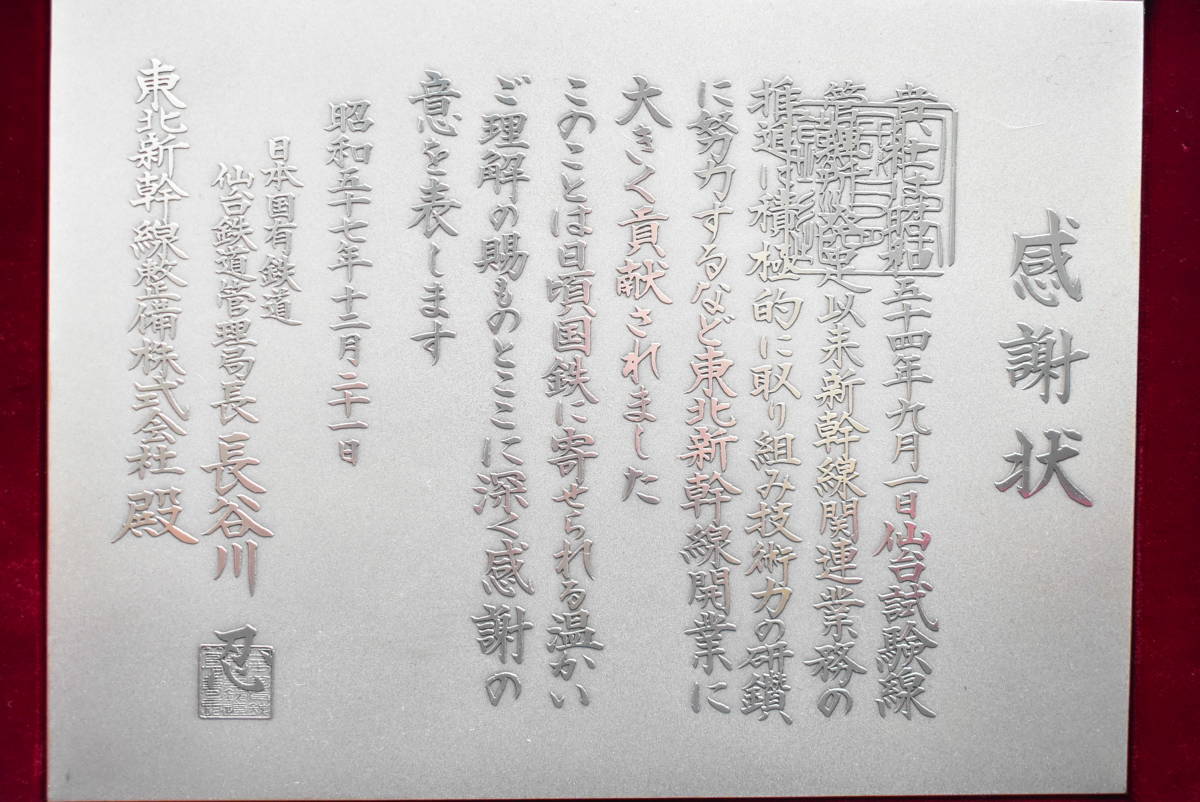 感謝状
貴社は昭和五十四年九月一日仙台試験線
管理所発足以来新幹線関連業務の
推進に積極的に取り組み技術力の研鑽
に努力するなど東北新幹線開業に
大きく貢献されました
このことは日頃国鉄に寄せられる温かい
ご理解の賜ものとここに深く感謝の
意を表します
昭和五十七年十二月二十一日
日本国有鉄道
仙台鉄道管理局長 長谷川 忍
東北新幹線整備株式会社 殿